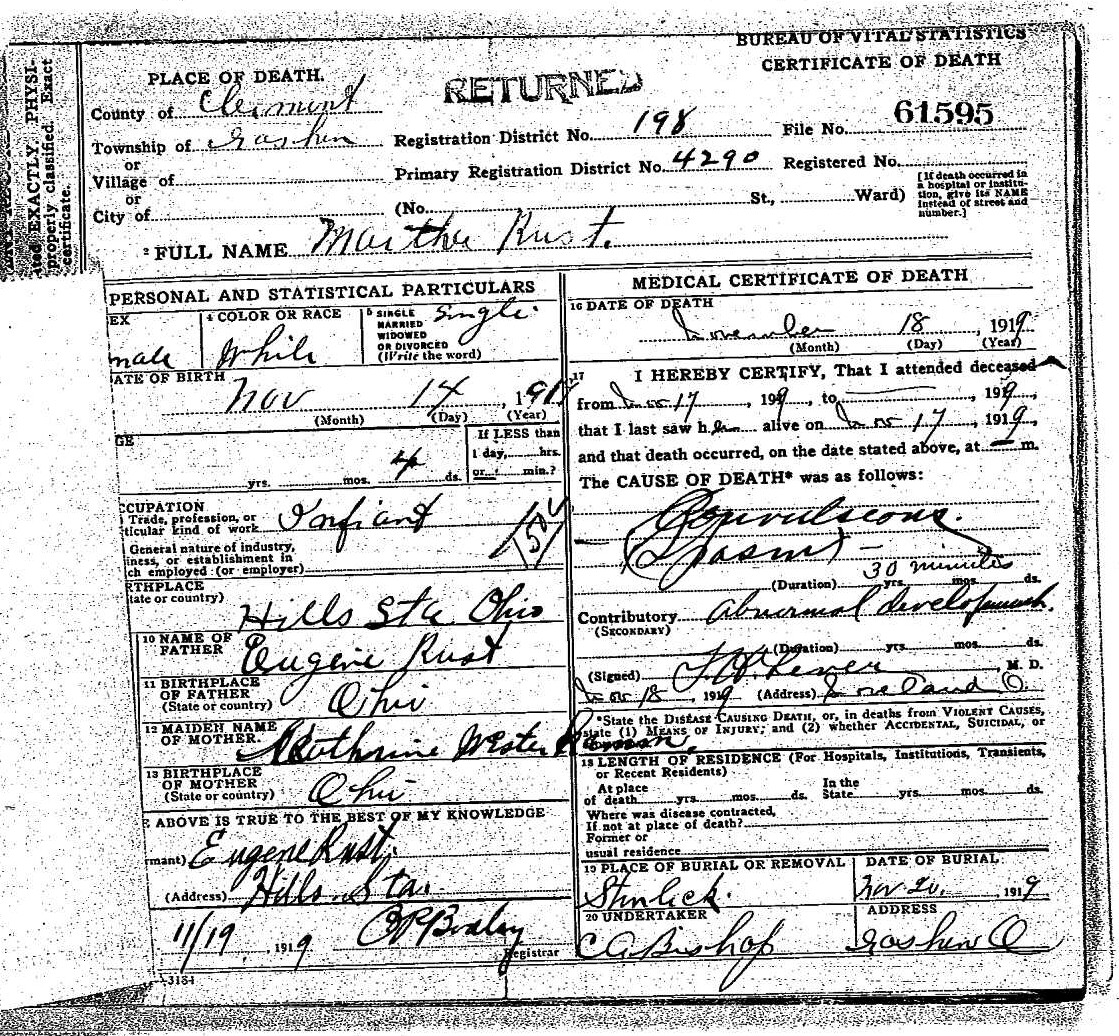 BUREAU OF VITAL STATISTICS
CERTIFICATE OF DEATH
RETURNED
PLACE OF DEATH.
County of Clermont
Township of Goshen
or
Village of
or
City of
Registration District No. 198
File No. 61595
Primary Registration District No. 4290
Registered No.
(No. St., Ward)
[If death occurred in
a hospital or institu-
tion, give its NAME
instead of street and
number.]
2 FULL NAME Martha Rust.
EXACTLY, PHYSI-
properly classified. Exact
certificate.
PERSONAL AND STATISTICAL PARTICULARS
EX
male
4 COLOR OR RACE
White
5 SINGLE
MARRIED
WIDOWED
OR DIVORCED
(Write the word)
Single
ATE OF BIRTH
Nov 14, 191
(Month) (Day) (Year)
GE
yrs. mos. 4 ds.
If LESS than
1 day, hrs.
or min.?
CCUPATION
Trade, profession, or
ticular kind of work Infant
General nature of industry,
iness, or establishment in
ch employed (or employer)
RTHPLACE
tate or country)
Hills Sta Ohio
10 NAME OF
FATHER
Eugene Rust
11 BIRTHPLACE
OF FATHER
(State or country)
Ohio
12 MAIDEN NAME
OF MOTHER
Kathrine Wester
13 BIRTHPLACE
OF MOTHER
(State or country)
Ohio
E ABOVE IS TRUE TO THE BEST OF MY KNOWLEDGE
rmant) Eugene Rust
(Address) Hills Sta.
11/19, 1919
Registrar
3184
MEDICAL CERTIFICATE OF DEATH
16 DATE OF DEATH
November 18, 1919
(Month) (Day) (Year)
17 I HEREBY CERTIFY, That I attended deceased
from Nov 17, 1919, to, 1919,
that I last saw h alive on Nov 17, 1919,
and that death occurred, on the date stated above, at m.
The CAUSE OF DEATH* was as follows:
Convulsions.
Spasms
30 minutes
(Duration) yrs. mos. ds.
Contributory abnormal development.
(SECONDARY)
(Duration) yrs. mos. ds.
(Signed), M. D.
Nov 18, 1919 (Address) Loveland O.
*State the DISEASE CAUSING DEATH, or, in deaths from VIOLENT CAUSES,
state (1) MEANS OF INJURY; and (2) whether ACCIDENTAL, SUICIDAL, or
18 LENGTH OF RESIDENCE (For Hospitals, Institutions, Transients,
or Recent Residents)
At place
of death yrs. mos. ds.
In the
State yrs. mos. ds.
Where was disease contracted,
If not at place of death?
Former or
usual residence
19 PLACE OF BURIAL OR REMOVAL
DATE OF BURIAL
Nov 20, 1919
20 UNDERTAKER
C A Bishop
ADDRESS
Goshen O